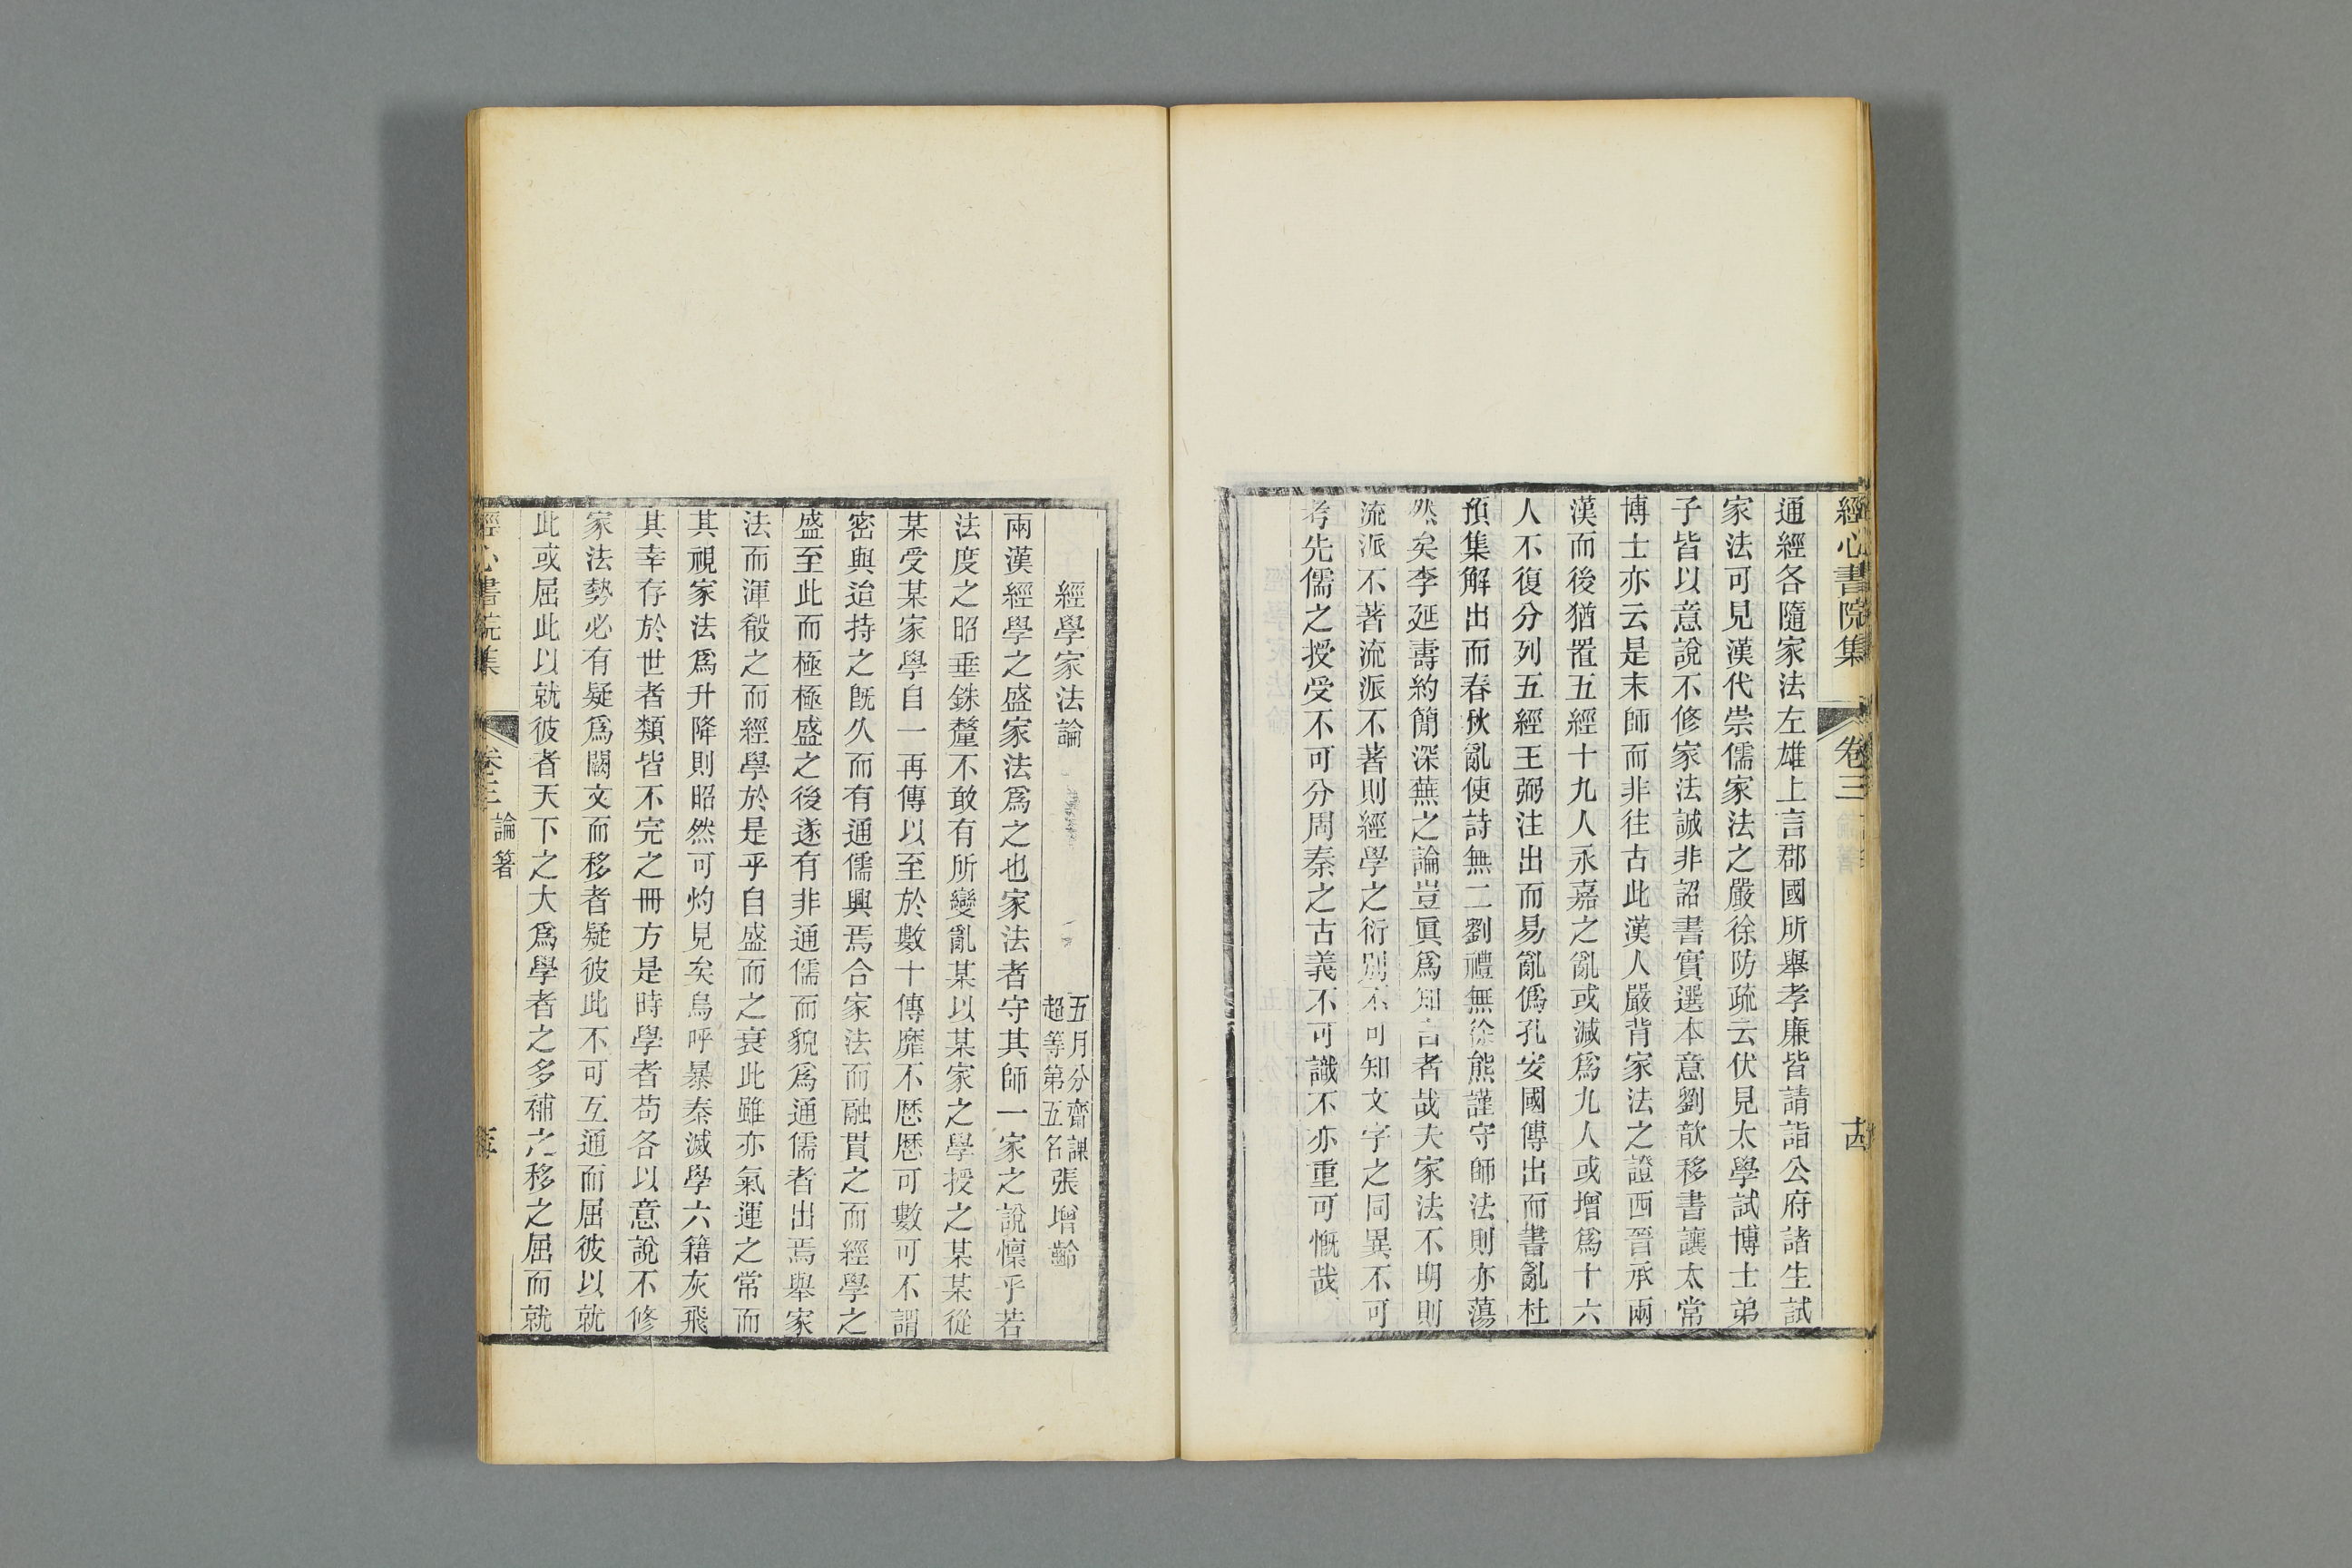 經心書院集 卷三 十四
通經各隨家法左雄上言郡國所舉孝廉皆請詣公府諸生試
家法可見漢代崇儒家法之嚴徐防疏云伏見太學試博士弟
子皆以意說不修家法誠非詔書實選本意劉歆移書讓太常
博士亦云是末師而非往古此漢人嚴背家法之證西晉承兩
漢而後猶置五經十九人永嘉之亂或減爲九人或增爲十六
人不復分列五經王弼注出而易亂僞孔安國傳出而書亂杜
預集解出而春秋亂使詩無二劉禮無徐熊謹守師法則亦蕩
然矣李延壽約簡深蕪之論豈眞爲知言者哉夫家法不明則
流派不著流派不著則經學之衍別不可知文字之同異不可
考先儒之授受不可分周秦之古義不可識不亦重可慨哉
經學家法論
五月分齋課
超等第五名
張增齡
兩漢經學之盛家法爲之也家法者守其師一家之說懍乎若
法度之昭垂銖釐不敢有所變亂某以某家之學授之某某從
某受某家學自一再傳以至於數十傳靡不歷歷可數可不謂
密與迨持之旣久而有通儒興焉合家法而融貫之而經學之
盛至此而極極盛之後遂有非通儒而貌爲通儒者出焉舉家
法而渾殽之而經學於是乎自盛而之衰此雖亦氣運之常而
其視家法爲升降則昭然可灼見矣烏呼暴秦滅學六籍灰飛
其幸存於世者類皆不完之冊方是時學者苟各以意說不修
家法勢必有疑爲闕文而移者疑彼此不可互通而屈彼以就
此或屈此以就彼者天下之大爲學者之多補之移之屈而就
經心書院集 卷三 論箸